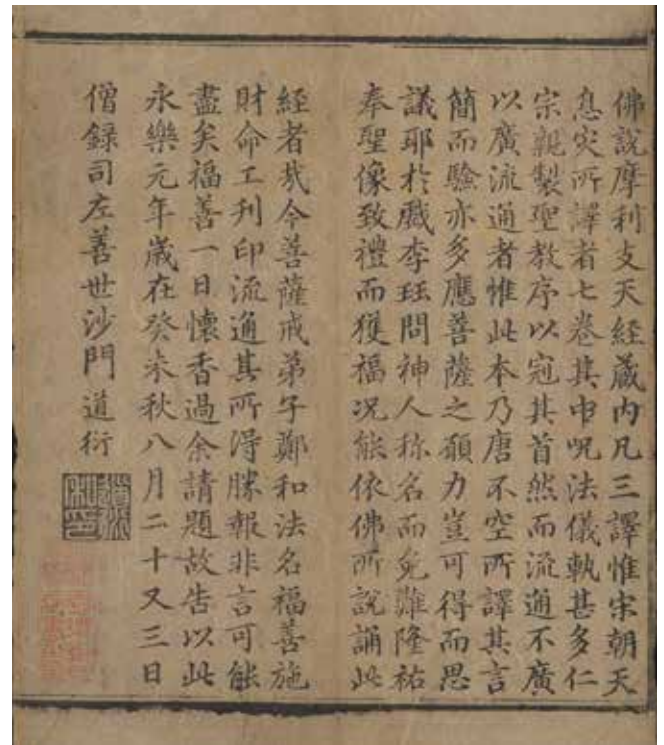 佛說摩利支天経蔵内凡三譯惟宋朝天
息灾所譯者七卷其中呪法儀軌甚多仁
宗親製聖教序以冠其首然而流通不廣
以廣流通者惟此本乃唐不空所譯其言
簡而驗亦多應菩薩之願力豈可得而思
議耶於戲李珏問神人称名而免難隆祐
奉聖像致禮而獲福况能依佛所說誦此
經者㢤今菩薩戒弟子鄭和法名福善施
財命工刊印流通其所得勝報非言可能
盡矣福善一日懷香過余請題故告以此
永樂元年歲在癸未秋八月二十又三日
僧録司左善世沙門道衍